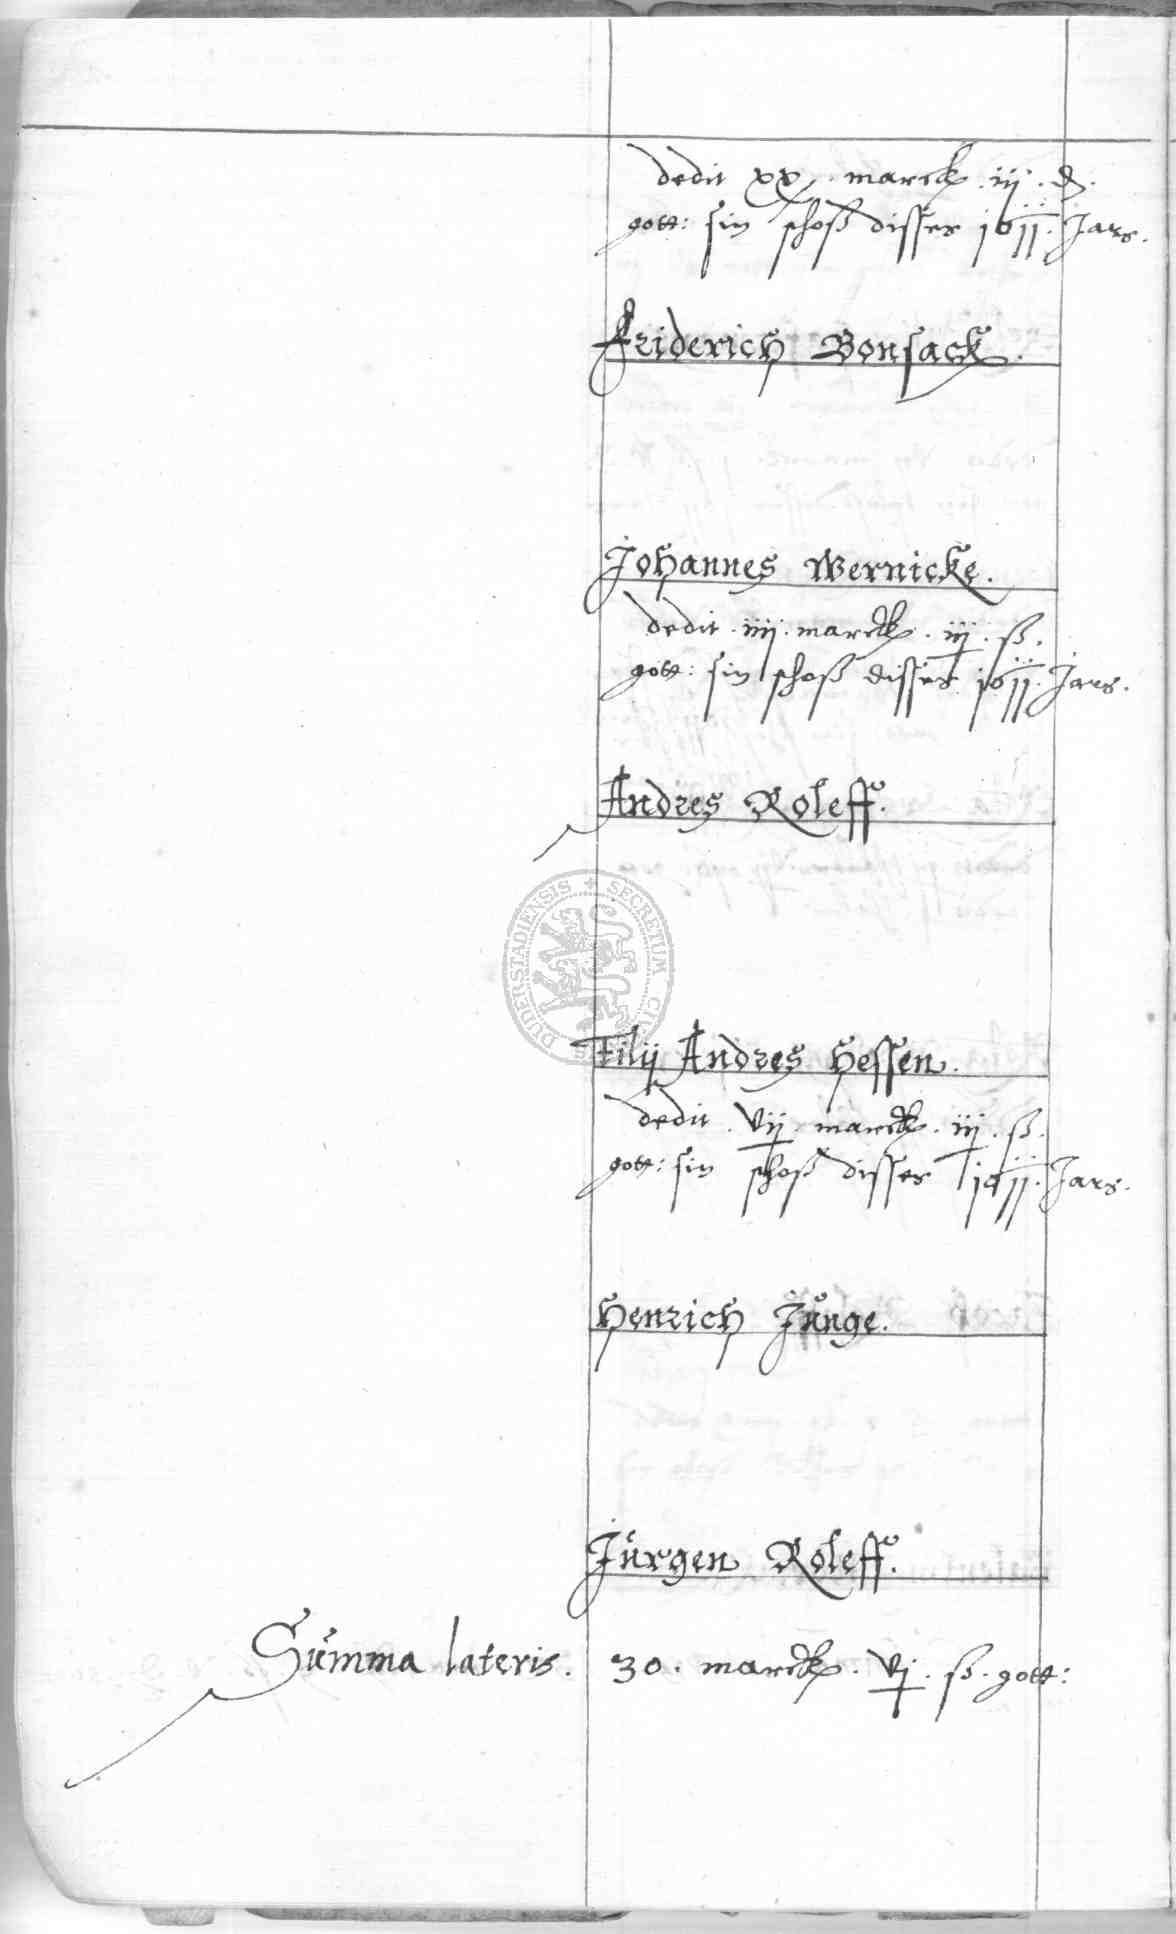 dedit xx. marck. iij. d.
gott: sin schoß disses 1611. Jars.
Friderich Bonsack.
Johannes Wernicke.
dedit. iiij. marck. iij. ß.
gott: sin schoß disses 1611. Jars.
Andres Roleff.
DUDERSTADIENSIS + SECRETUM
Filij Andres Hessen.
dedit. vij. marck. iij. ß.
gott: sin schoß disses 1611. Jars.
Henrich Junge.
Jürgen Roleff.
Summa lateris. 30. marck. vj. ß. gott: